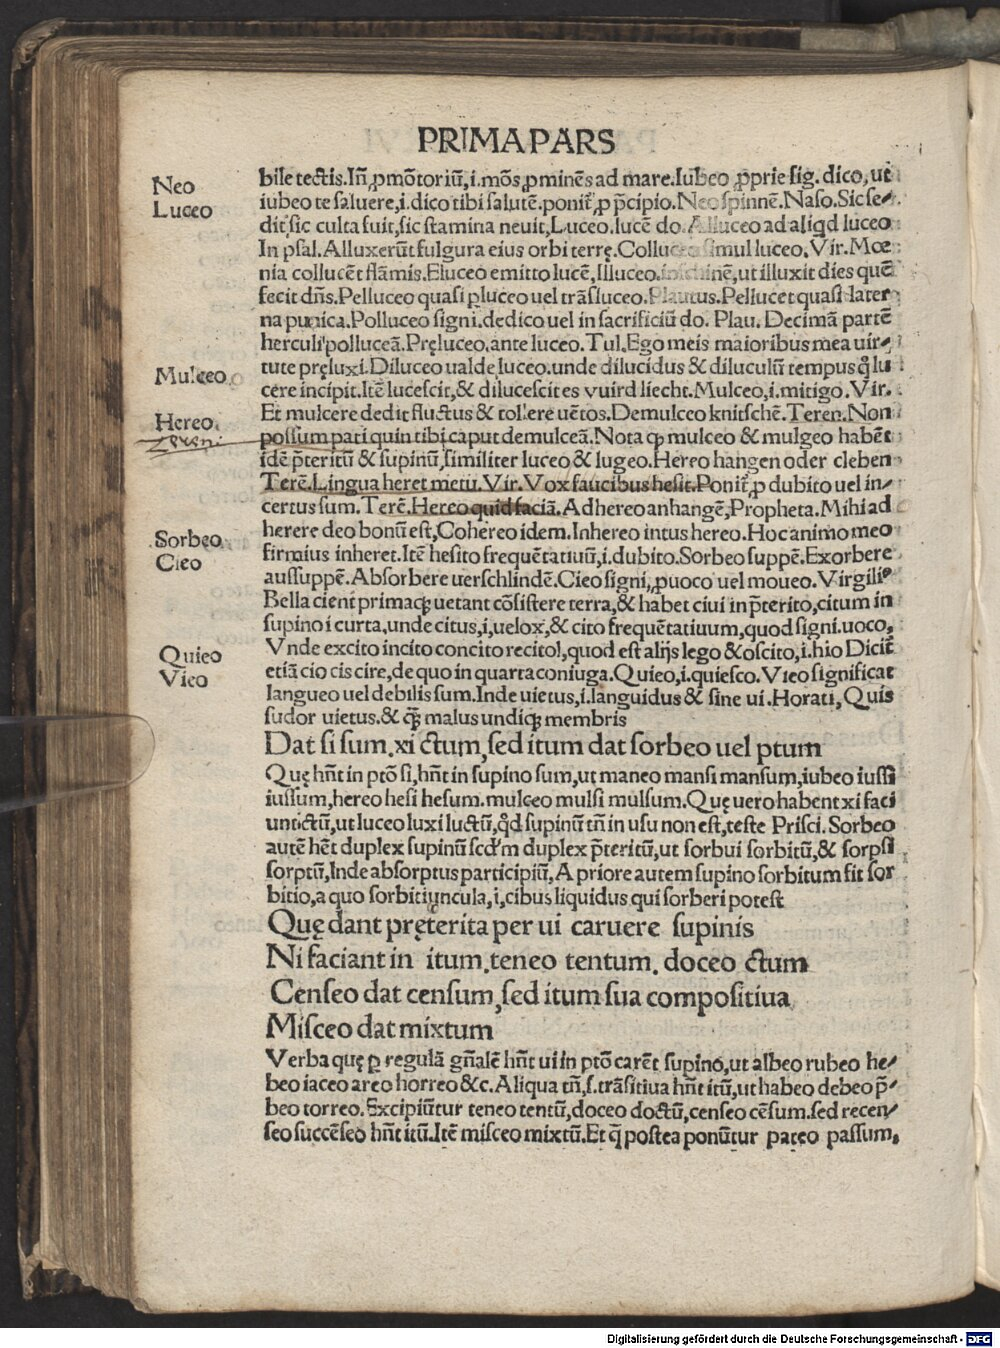 PRIMA PARS
Neo
Luceo
Mulceo
Hereo
Tereni
Sorbeo
Cieo
Quieo
Vieo
bile tectis.Iñ,ꝓmõtoriũ,i.mõs,ꝓminẽs ad mare.Iubeo ꝓprie sig.dico,ut
iubeo te saluere,i.dico tibi salutẽ.ponit̃ ꝓ p̃cipio.Neo spinnẽ.Naso.Sic se⸗
dit,sic culta fuit,sic stamina neuit,Luceo.lucẽ do.Alluceo ad aliqd luceo
In psal.Alluxerũt fulgura eius orbi terrę.Colluceo simul luceo.Vir.Mœ
nia collucẽt flãmis.Eluceo emitto lucẽ,Illuceo.inschinẽ,ut illuxit dies quẽ
fecit dñs.Pelluceo quasi ꝑluceo uel trãsluceo.Plautus.Pellucet quasi later
na punica.Polluceo signi.dedico uel in sacrificiũ do. Plau. Decimã partẽ
herculi polluceã.Pręluceo.ante luceo. Tul.Ego meis maioribus mea uir⸗
tute pręluxi.Diluceo ualde luceo.unde dilucidus & diluculũ tempus q̊ lu
cere incipit.Itẽ lucescit,& dilucescit es vuird liecht.Mulceo,i.mitigo.Vir.
Et mulcere dedit fluctus & tollere uẽtos.Demulceo knitschẽ.Teren.Non
possum pati quin tibi caput demulceã.Nota ꝙ mulceo & mulgeo habẽt
idẽ p̃teritũ & supinũ,similiter luceo & lugeo.Hereo hangen oder cleben
Terẽ.Lingua heret metu.Vir.Vox faucibus hesit.Ponit̃ ꝓ dubito uel in⸗
certus sum.Terẽ.Hereo quid faciã.Adhereo anhangẽ,Propheta.Mihi ad
herere deo bonũ est,Cohereo idem.Inhereo intus hereo.Hoc animo meo
firmius inheret.Itẽ hesito frequẽtatiuũ,i.dubito.Sorbeo suppẽ.Exorbere
aussuppẽ.Absorbere uerschlindẽ.Cieo signi,ꝓuoco uel moueo.Virgiliꝰ
Bella cient primaqꝫ uetant cõsistere terra,& habet ciui in p̃terito,citum in
supino i curta,unde citus,i,uelox,& cito frequẽtatiuum,quod signi.uoco,
Vnde excito incito concito recito!,quod est alijs lego & oscito,i.hio Dicit̃
etiã cio cis cire,de quo in quarta coniuga.Quieo,i.quiesco.Vieo significat
langueo uel debilis sum.Inde uietus,i.languidus & sine ui.Horati,Quis
sudor uietus.& q̃ꝫ malus undiqꝫ membris
Dat si sum.xi ctum,sed itum dat sorbeo uel ptum
Quę hñt in ptõ si,hñt in supino sum,ut maneo mansi mansum,iubeo iussi
iussum,hereo hesi hesum.mulceo mulsi mulsum.Quę uero habent xi faci
unt ctũ,ut luceo luxi luctũ,q̊d supinũ tñ in usu non est,teste Prisci.Sorbeo
autẽ hẽt duplex supinũ scd'm duplex p̃teritũ,ut sorbui sorbitũ,& sorpsi
sorptũ,Inde absorptus participiũ,A priore autem supino sorbitum fit sor
bitio,a quo sorbitiuncula,i,cibus liquidus qui sorberi potest
Quę dant pręterita per ui caruere supinis
Ni faciant in itum.teneo tentum.doceo ctum
Censeo dat censum,sed itum sua compositiua
Misceo dat mixtum
Verba quę ꝑ regulã gñalẽ hñt ui in ptõ carẽt supino,ut albeo rubeo he⸗
beo iaceo areo horreo &c.Aliqua tñ,s.trãsitiua hñt itũ,ut habeo debeo p̃⸗
beo torreo.Excipiũtur teneo tentũ,doceo doctũ,censeo cẽsum.sed recen⸗
seo succẽseo hñt itũ.Itẽ misceo mixtũ.Et q̃ postea ponũtur pateo passum,
Digitalisierung gefördert durch die Deutsche Forschungsgemeinschaft - DFG